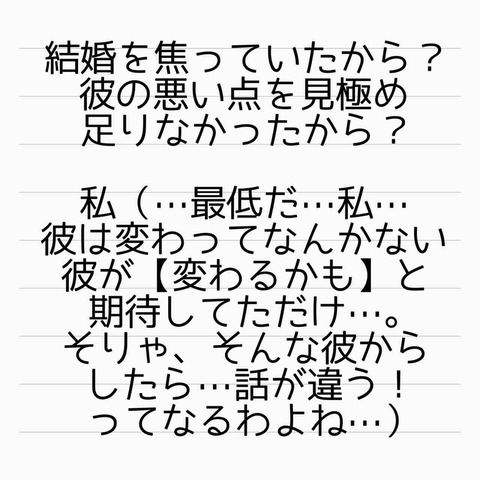 結婚を焦っていたから？
彼の悪い点を見極め
足りなかったから？
私（…最低だ…私…
彼は変わってなんかない
彼が【変わるかも】と
期待してただけ…。
そりゃ、そんな彼から
したら…話が違う！
ってなるわよね…）